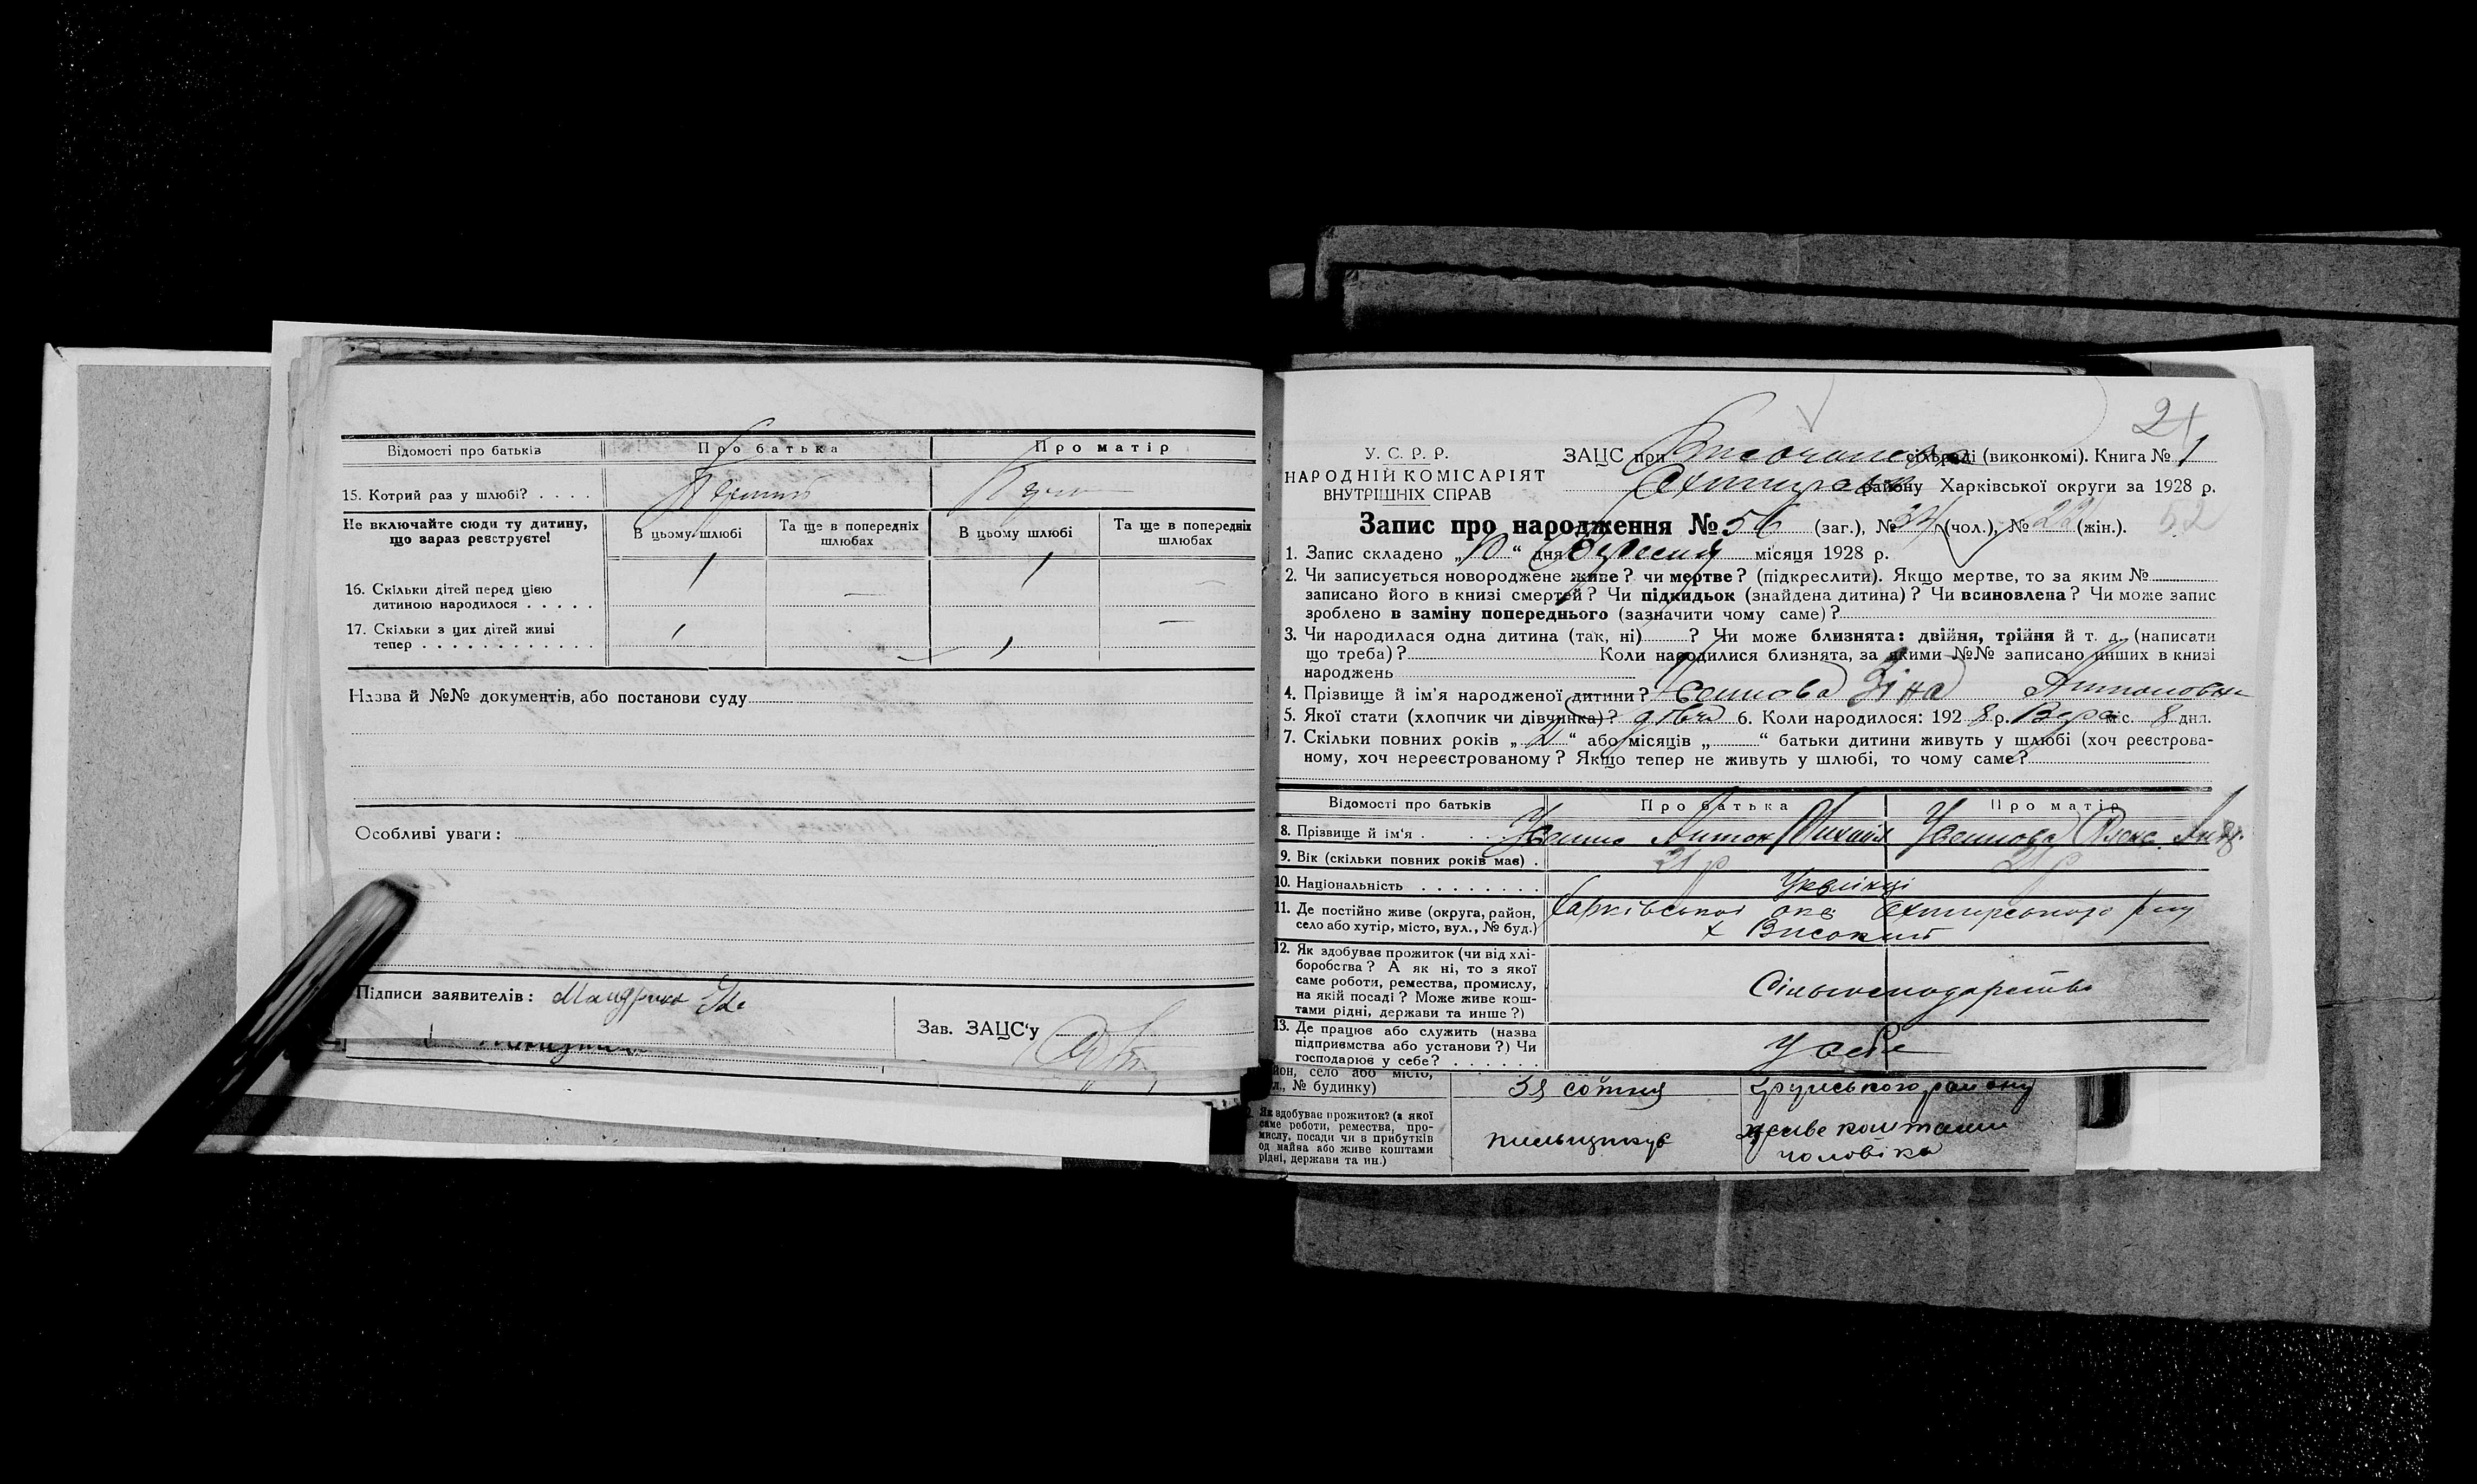 Відомості про батьків
Про батька
Про матір
15. Котрий раз у шлюбі? . . . .
Не включайте сюди ту дитину,
що зараз реєструєте!
В цьому шлюбі
Та ще в попередніх
шлюбах
В цьому шлюбі
Та ще в попередніх
шлюбах
16. Скільки дітей перед цією
дитиною народилося . . . . .
1 — 1 —
17. Скільки з цих дітей живі
тепер . . . . . . . . . . . .
1 1 —
Назва й №№ документів, або постанови суду
Особливі уваги:
Підписи заявителів:
Зав. ЗАЦС'у
21
У. С. Р. Р.
НАРОДНІЙ КОМІСАРІЯТ
ВНУТРІШНІХ СПРАВ
ЗАЦС при сільраді (виконкомі). Книга № 1
району Харківської округи за 1928 р.
Запис про народження № 56 (заг.), № 34 (чол.), № 22 (жін.). 52
1. Запис складено „10“ дня Вересня місяця 1928 р.
2. Чи записується новороджене живе? чи мертве? (підкреслити). Якщо мертве, то за яким №
записано його в книзі смертей? Чи підкидьок (знайдена дитина)? Чи всиновлена? Чи може запис
зроблено в заміну попереднього (зазначити чому саме)?
3. Чи народилася одна дитина (так, ні) ? Чи може близнята: двійня, трійня й т. д. (написати
що треба)? Коли народилися близнята, за якими №№ записано инших в книзі
народжень
4. Прізвище й ім'я народженої дитини? Зіна Антоновна
5. Якої стати (хлопчик чи дівчинка)? дівч 6. Коли народилося: 192 8 р. Вере міс. 8 дня.
7. Скільки повних років „2“ або місяців „ “ батьки дитини живуть у шлюбі (хоч реєстрова-
ному, хоч нереєстрованому? Якщо тепер не живуть у шлюбі, то чому саме?
Відомості про батьків
Про батька
Про матір
8. Прізвище й ім'я . Антон Михайл
9. Вік (скільки повних років має) .
10. Національність . . . . . . . . Українці
11. Де постійно живе (округа, район,
село або хутір, місто, вул., № буд.)
Харківської окр Охтирского р-ну
х Високий
12. Як здобуває прожиток (чи від хлі-
боробства? А як ні, то з якої
саме роботи, ремества, промислу,
на якій посаді? Може живе кош-
тами рідні, держави та инше?)
Сільгосподарство
13. Де працює або служить (назва
підприємства або установи?) Чи
господарює у себе? . . . . . .
У себе
йон, село або місто,
л., № будинку)
3я сотня
району
Як здобуває прожиток? (з якої
саме роботи, ремества, про-
мислу, посади чи в прибутків
од майна або живе коштами
рідні, держави та ин.)
живе коштами
чоловіка